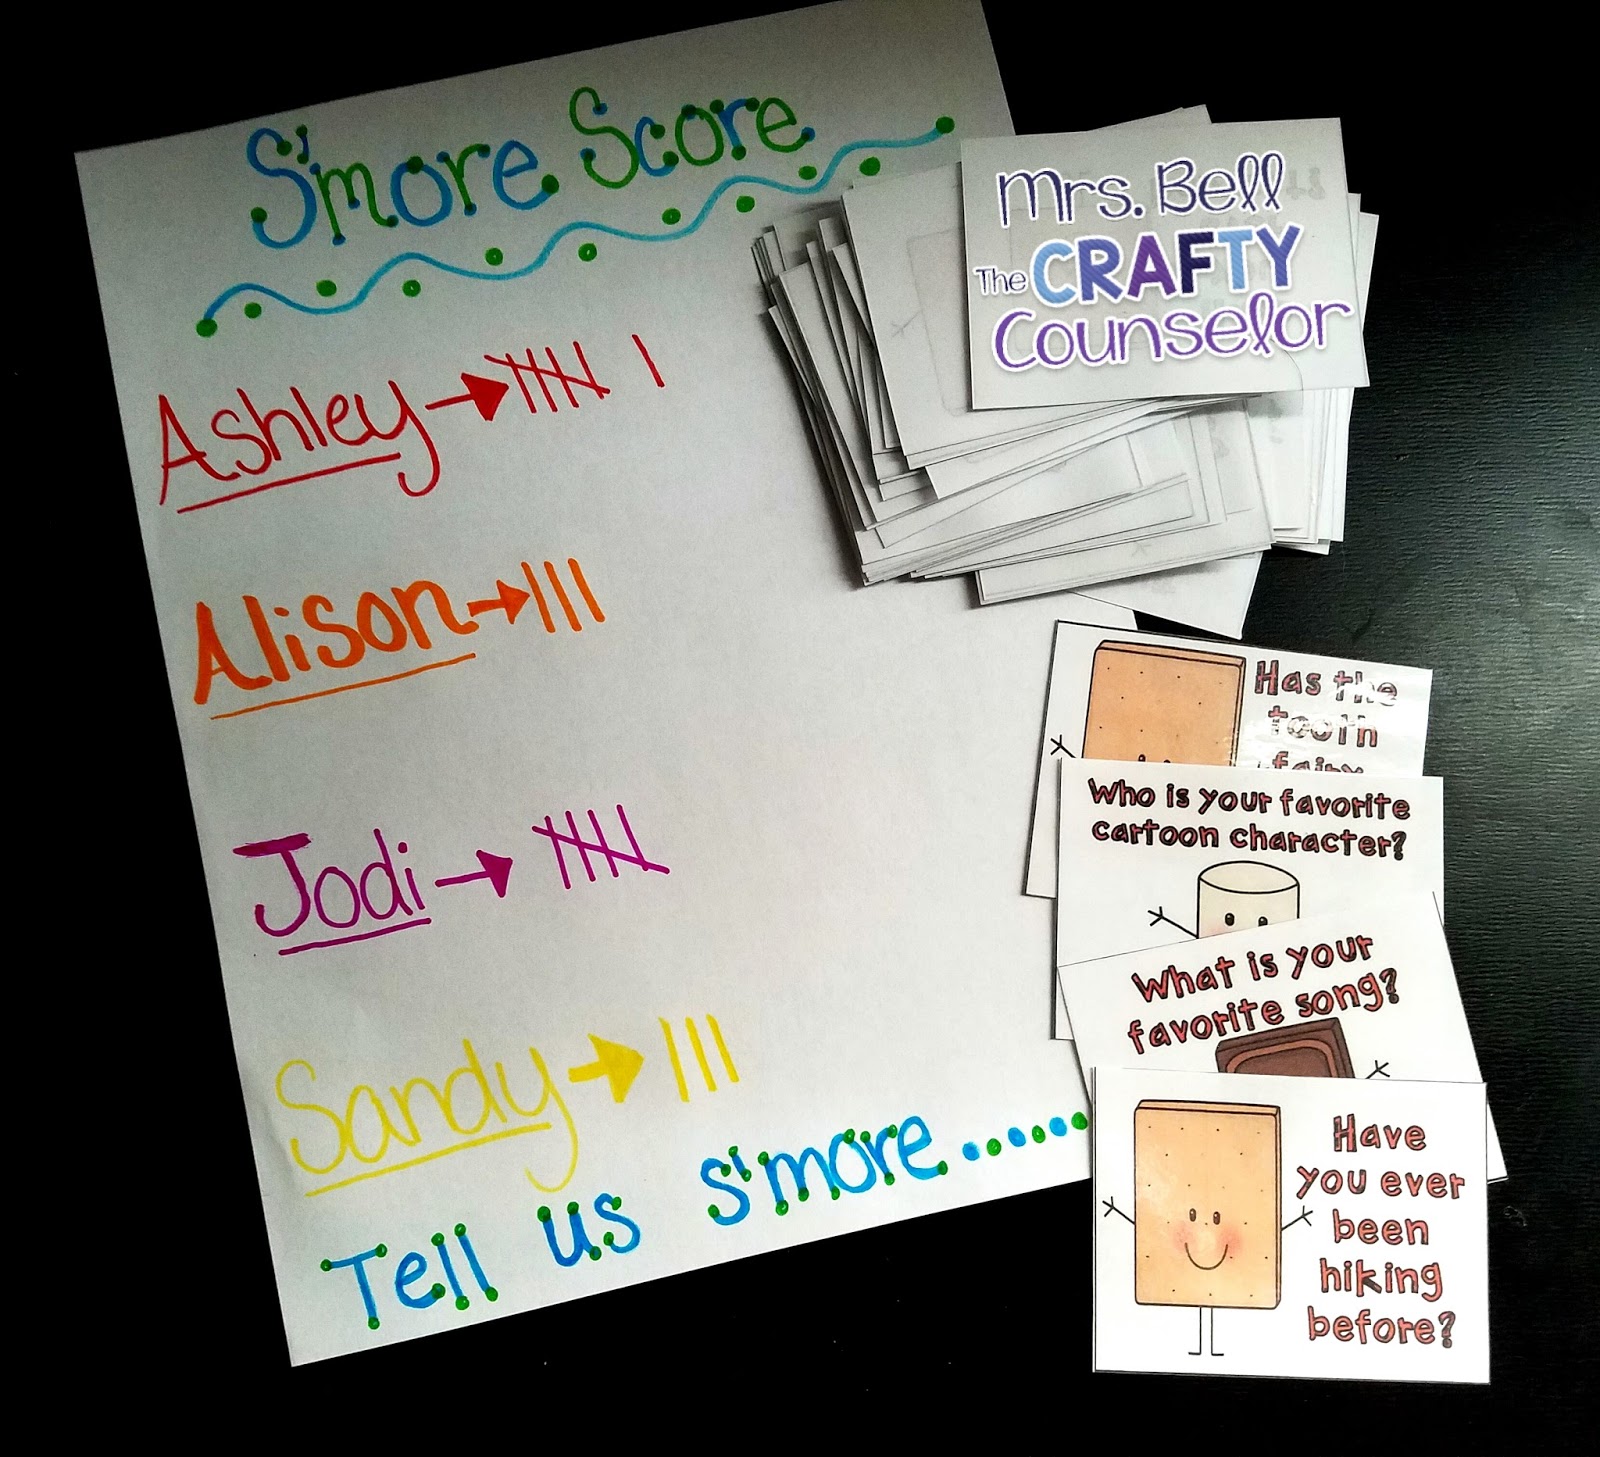 S'more Score
Ashley
Alison
Jodi
Sandy
Tell us s'more......
Mrs. Bell
The CRAFTY
Counselor
Has the
tooth
fairy
Who is your favorite
cartoon character?
What is your
favorite song?
Have
you ever
been
hiking
before?